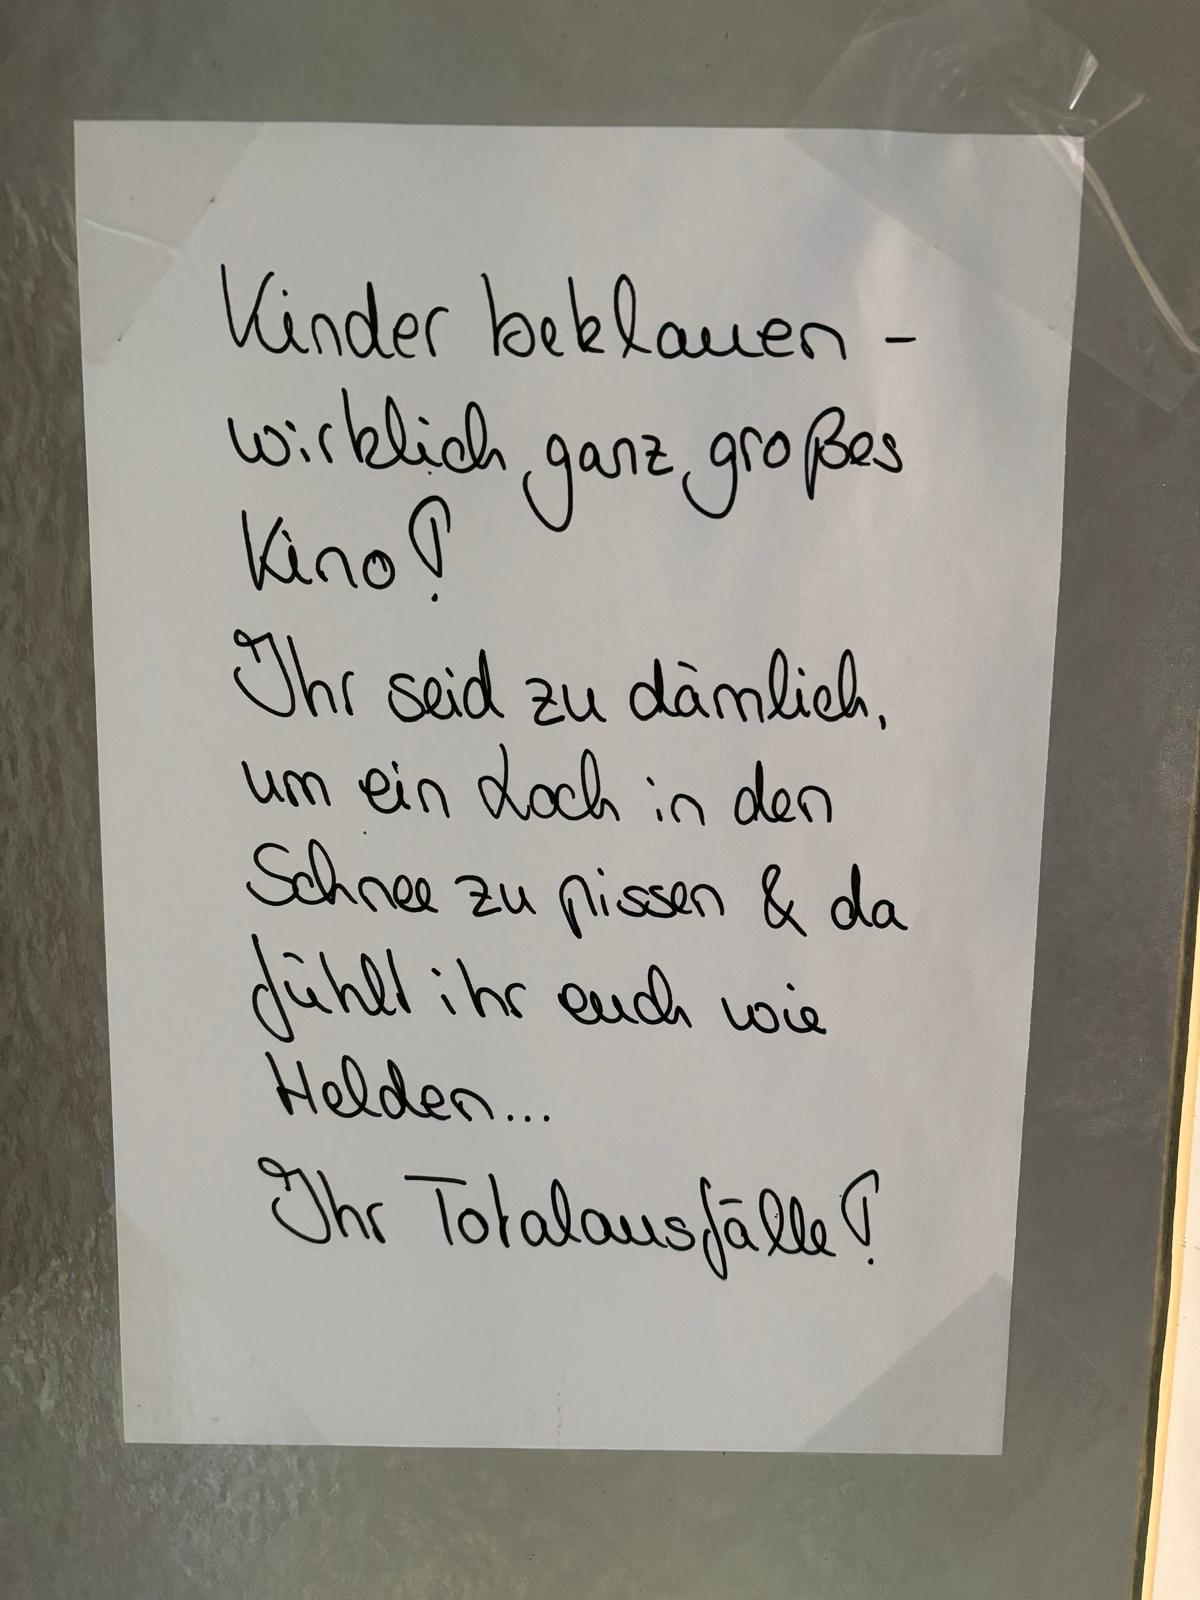 Kinder beklauen -
wirklich ganz großes
Kino!
Ihr seid zu dämlich,
um ein Loch in den
Schnee zu pissen & da
fühlt ihr euch wie
Helden...
Ihr Totalausfälle!